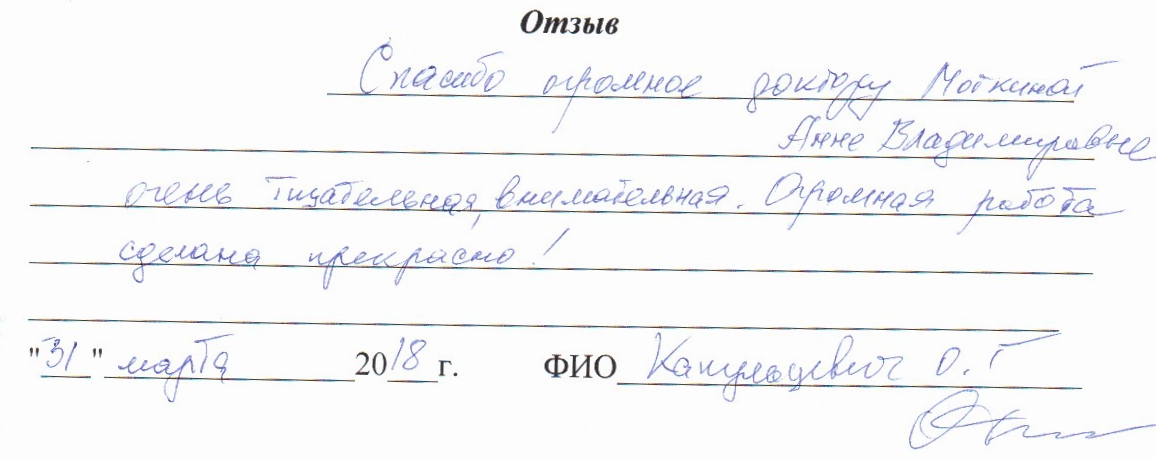 Отзыв
Спасибо огромное доктору Моткиной
Анне Владимировне
очень тщательная, внимательная. Огромная работа
сделана прекрасно!
"31" марта 2018 г. ФИО О.Г